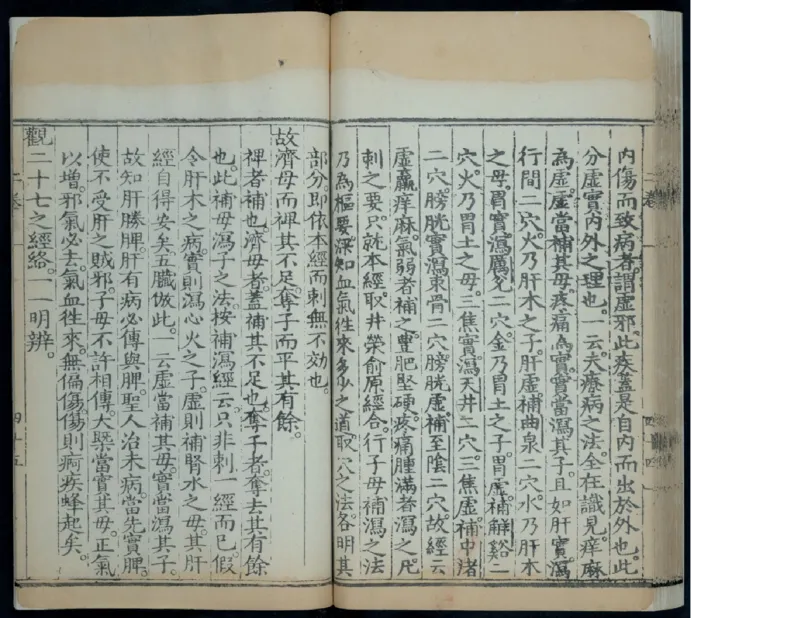 內傷而致病者。謂虛邪。此疾蓋是自內而出於外也。此
分虛實內外之理也。一云夫療病之法。全在識見。痒麻
為虛。虛當補其母。疼痛為實。實當瀉其子。且如肝實瀉
行間二穴。火乃肝木之子。肝虛補曲泉二穴。水乃肝木
之母。胃實瀉厲兌二穴。金乃胃土之子。胃虛補解谿二
穴。火乃胃土之母。三焦實瀉天井二穴。三焦虛補中渚
二穴。膀胱實瀉束骨二穴。膀胱虛補至陰二穴。故經云
虛羸。痒麻。氣弱者補之。豐肥堅硬。疼痛腫滿者瀉之。凡
刺之要。只就本經取井滎俞原經合。行子母補瀉之法
乃為樞要。深知血氣徃來多少之道。取穴之法。各明其
部分。即依本經而刺無不効也。
故濟母而裨其不足。奪子而平其有餘。
裨者補也。濟母者。蓋補其不足也。奪子者。奪去其有餘
也。此補母瀉子之法。按補瀉經云。只非刺一經而已。假
令肝木之病。實則瀉心火之子。虛則補腎水之母。其肝
經自得安矣。五臟倣此。一云虛當補其母。實當瀉其子。
故知肝勝脾。肝有病必傳與脾。聖人治未病。當先實脾。
使不受肝之賊邪。子母不許相傳。大槩當實其母。正氣
以增。邪氣必去。氣血徃來。無偏傷。傷則痾疾蜂起矣。
觀二十七之經絡。一一明辨。
二卷
四十四
二卷
四十五